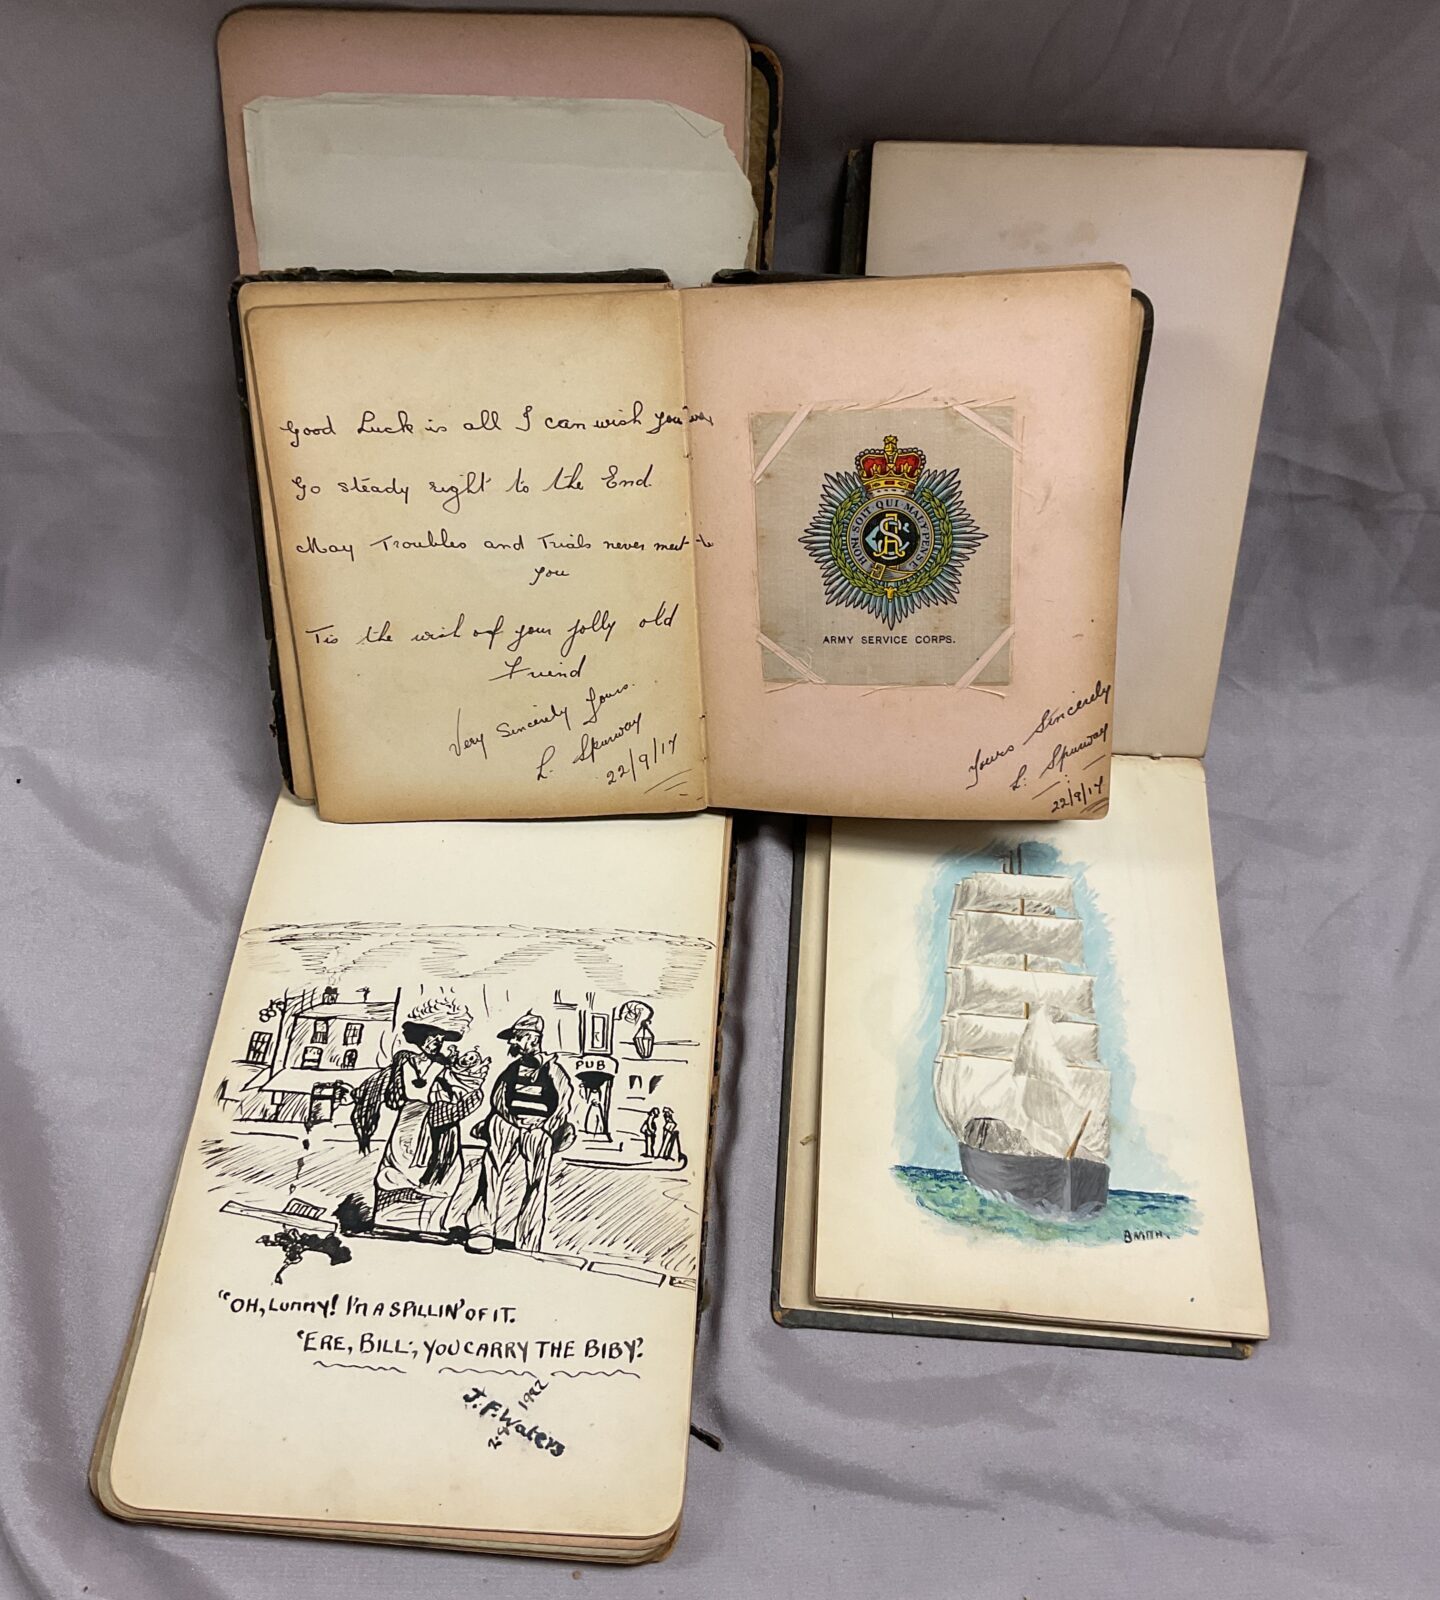 Good Luck is all I can wish you
Go steady right to the End.
May Troubles and Trials never meet
you
Tis the wish of your jolly old
Friend
Very Sincerely Yours.
L. Spurway
22/9/17
HONI SOIT QUI MAL Y PENSE
ARMY SERVICE CORPS.
Yours Sincerely
L. Spurway
22/9/17
PUB
"OH, LUMMY! I'M A SPILLIN' OF IT.
'ERE, BILL, YOU CARRY THE BIBY".
J. F. Waters
1922